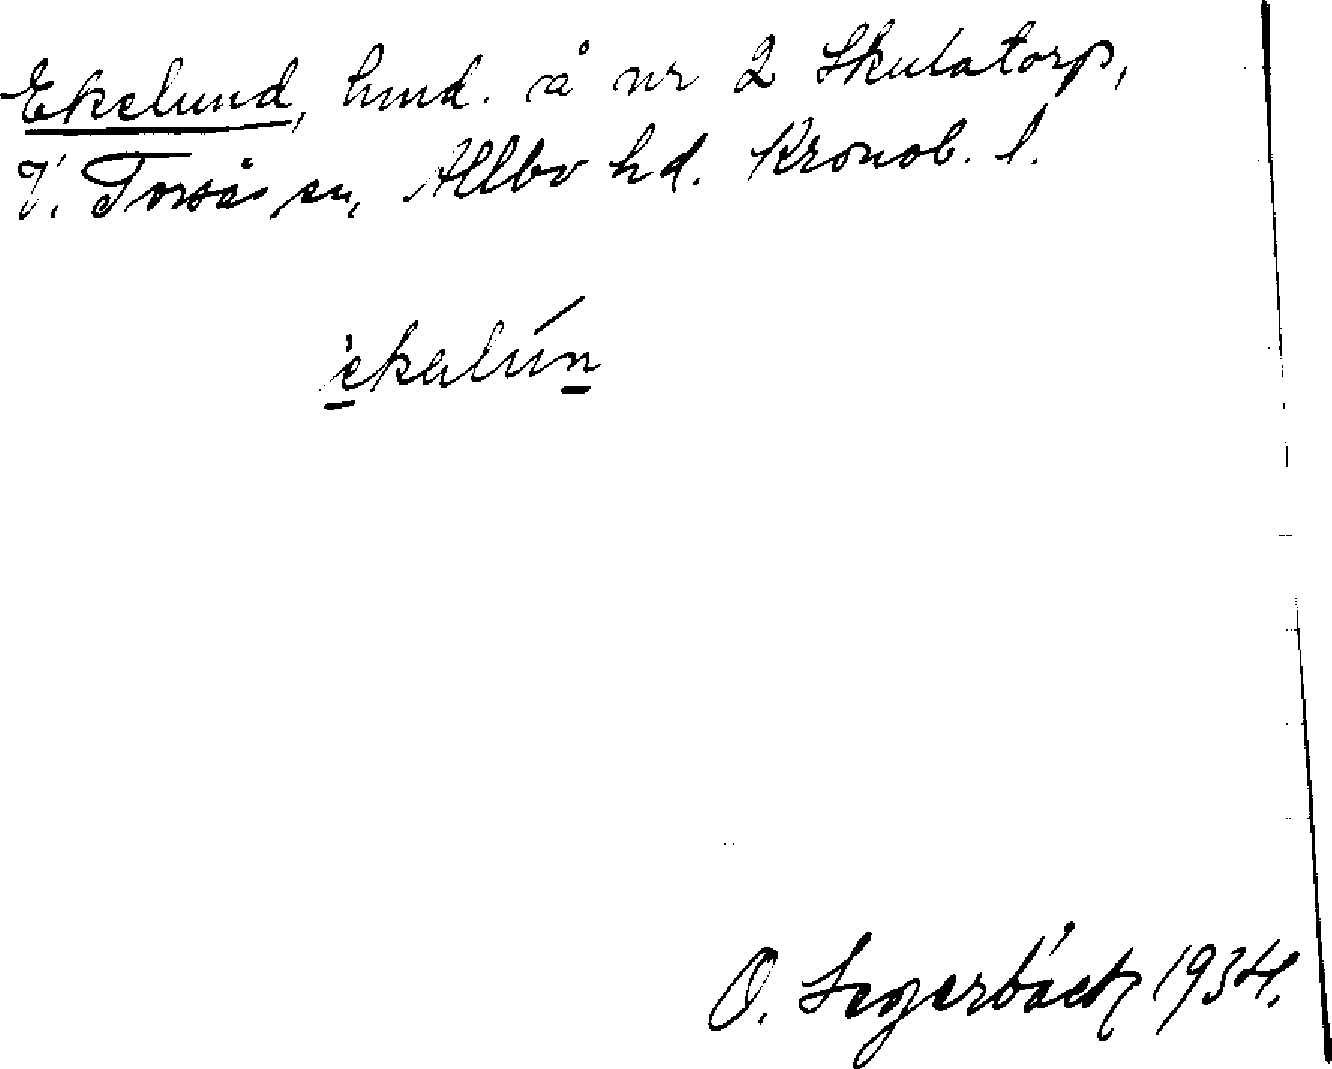 Ekelund, hmd. å nr 2 Skulatorp,
V. Torsås sn, Allbo hd. Kronob. l.
èkalún
O. Segerbäck 1934.